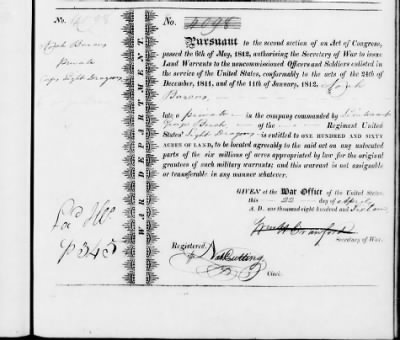 No. 4098
Private
Light Dragoons
WAR DEPARTMENT.
No. 4098
Pursuant to the second section of an Act of Congress,
passed the 6th of May, 1812, authorising the Secretary of War to issue
Land Warrants to the noncommissioned Officers and Soldiers enlisted in
the service of the United States, conformably to the acts of the 24th of
December, 1811, and of the 11th of January, 1812.
late a private in the company commanded by
George of the Regiment United
States' Light Dragoons is entitled to ONE HUNDRED AND SIXTY
ACRES OF LAND, to be located agreeably to the said act on any unlocated
parts of the six millions of acres appropriated by law for the original
grantees of such military warrants; and this warrant is not assignable
or transferable in any manner whatever.
GIVEN at the War Office of the United States,
this 22 day of April
A. D. one thousand eight hundred and
Wm H Crawford
Secretary of War.
Registered,
Nat Cutting
Clerk.
P 345